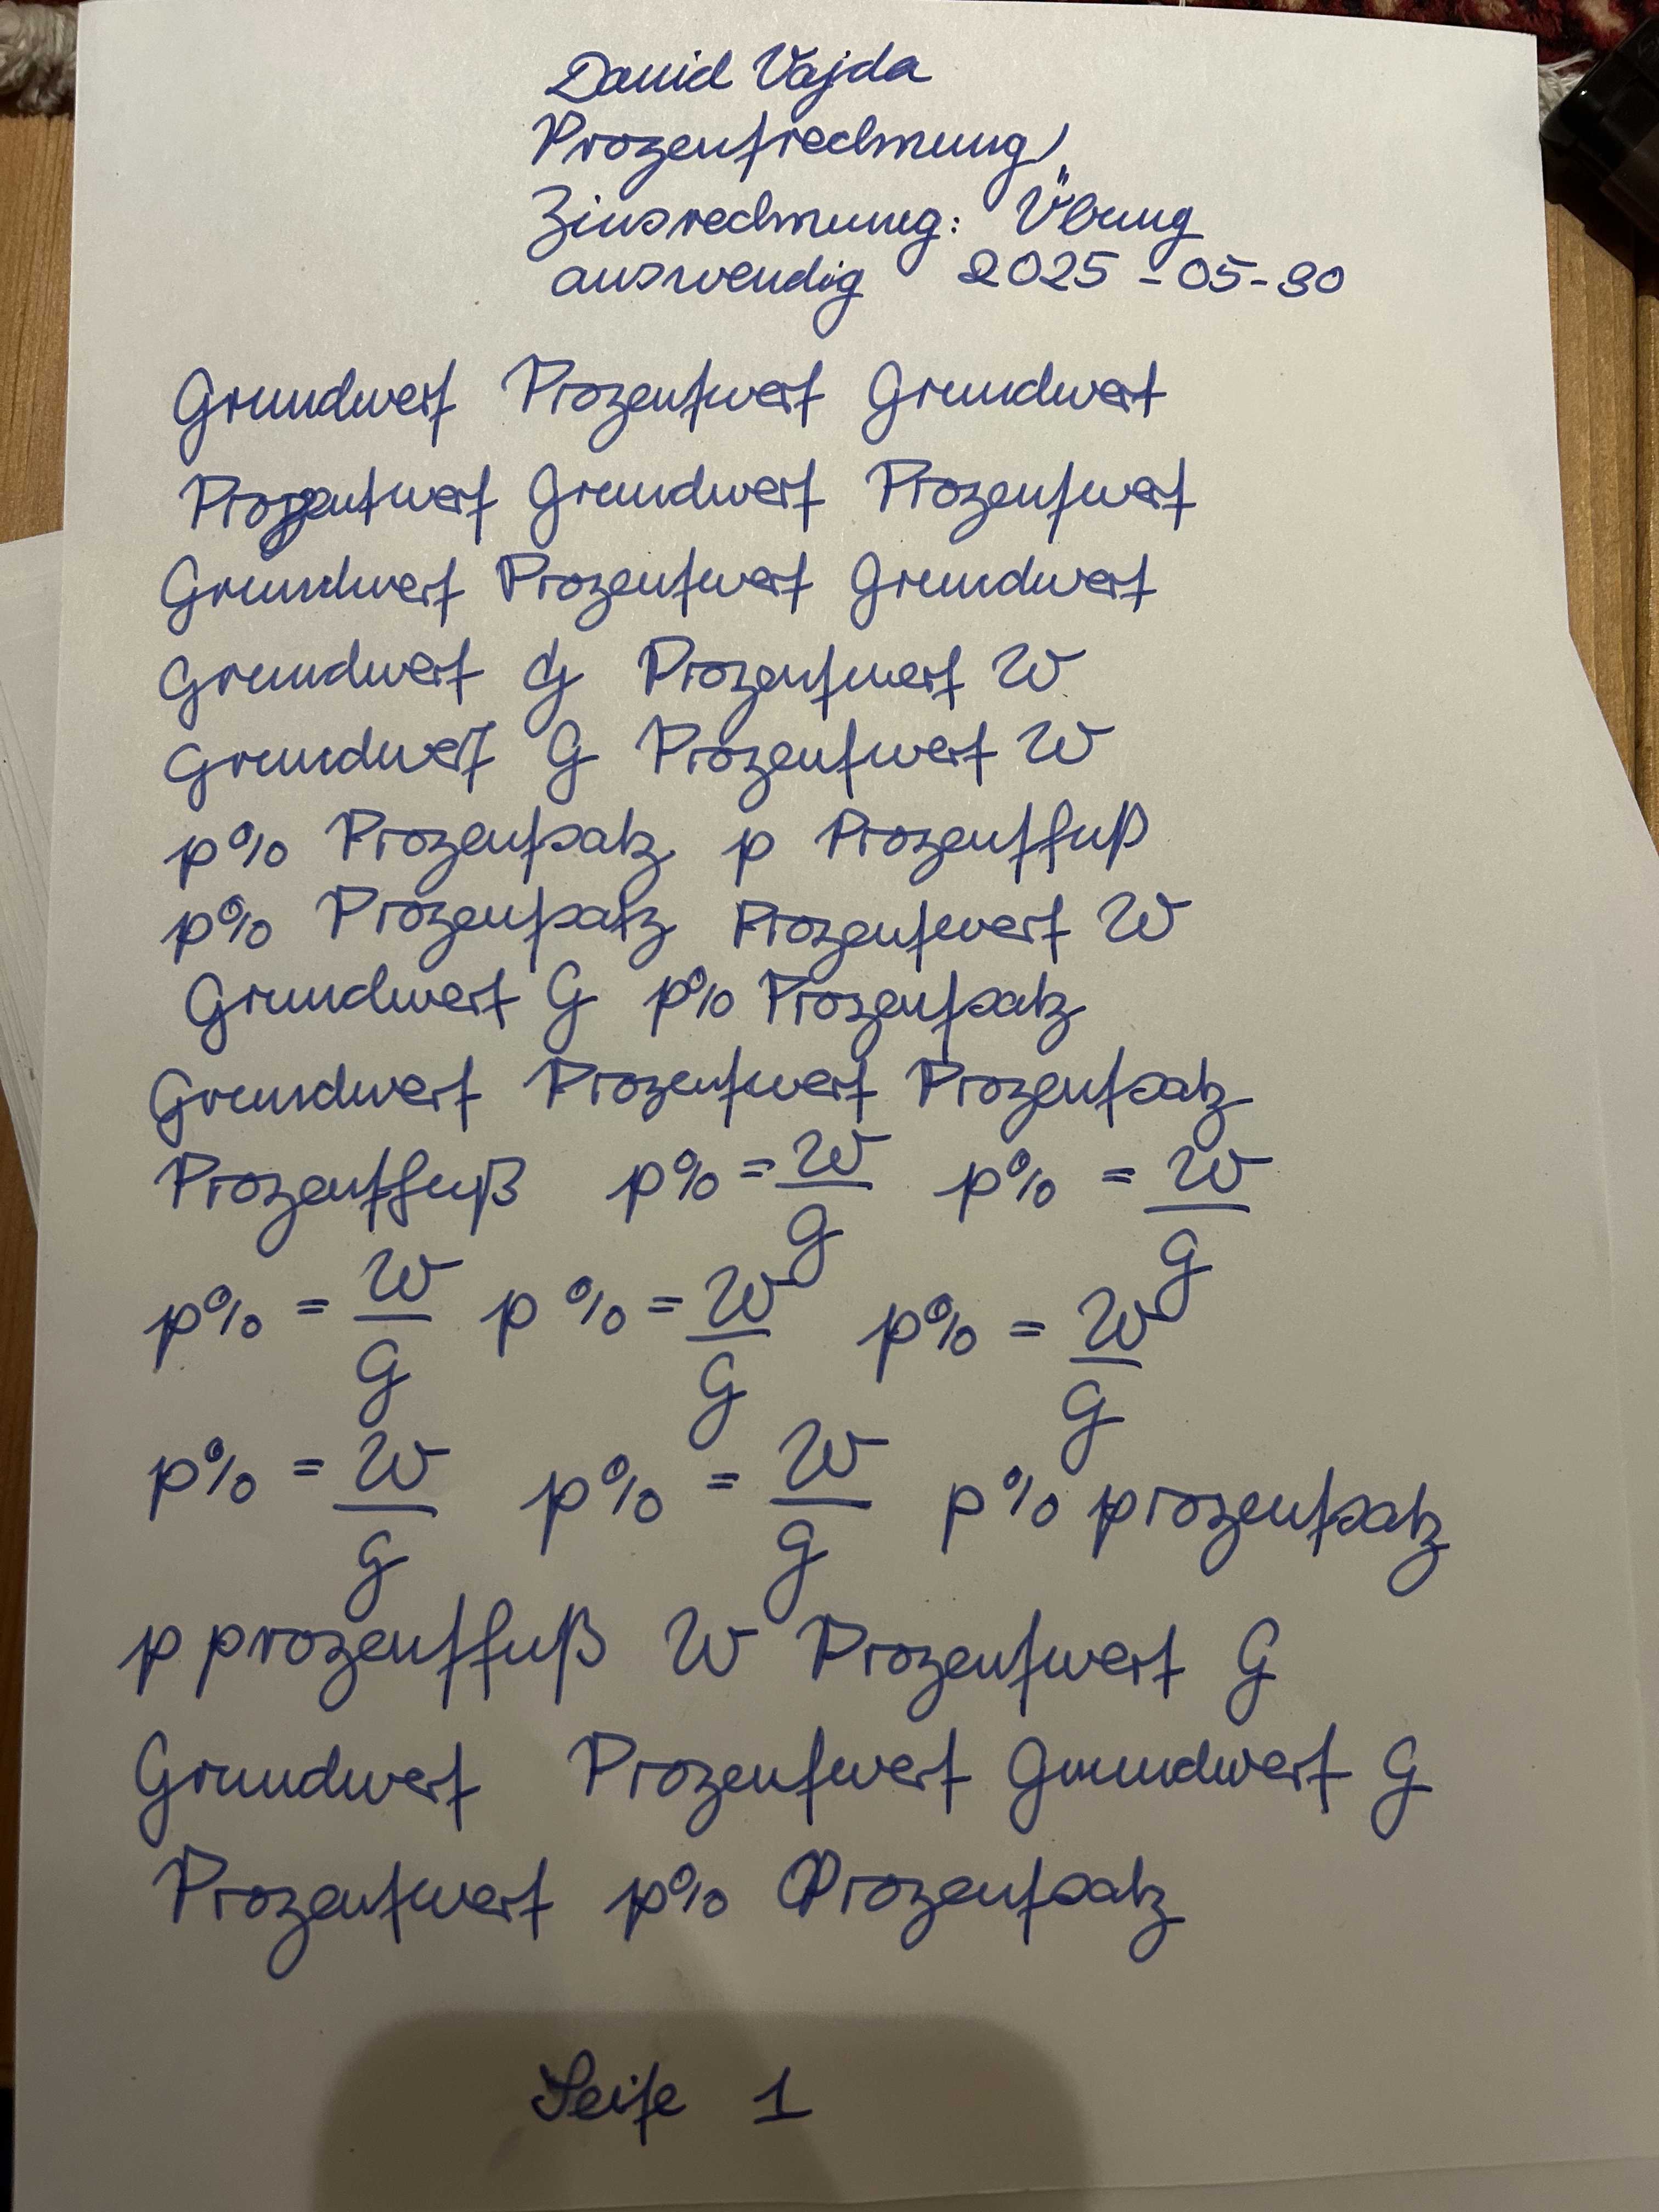 David Vajda
Prozentrechnung,
Zinsrechnung: Übung
auswendig 2025-05-30
Grundwert Prozentwert Grundwert
Prozentwert Grundwert Prozentwert
Grundwert Prozentwert Grundwert
Grundwert G Prozentwert W
Grundwert G Prozentwert W
p% Prozentsatz p Prozentfuß
p% Prozentsatz Prozentwert W
Grundwert G p% Prozentsatz
Grundwert Prozentwert Prozentsatz
Prozentfuß p% = W/G p% = W/G
p% = W/G p% = W/G p% = W/G
p% = W/G p% = W/G p% prozentsatz
p prozentfuß W Prozentwert G
Grundwert Prozentwert Grundwert G
Prozentwert p% Prozentsatz
Seite 1